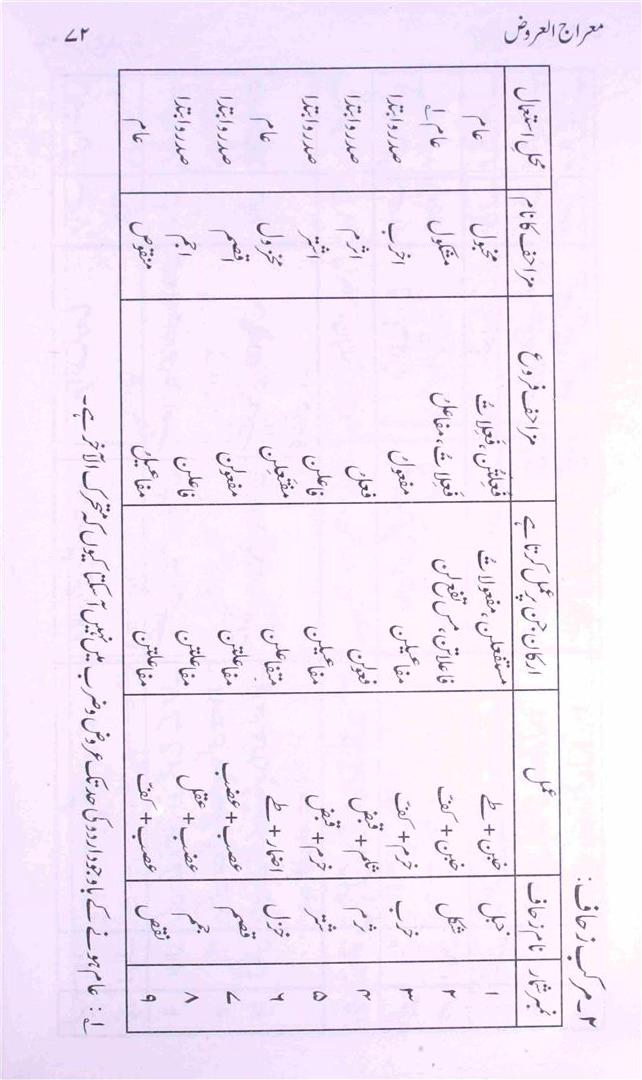 معراج العروض
۷۲
۲۔ مرکب زحاف:
نمبر شمار | نام زحاف | عمل | ارکان جن پر عمل کرتا ہے | مزاحف فروع | مزاحف کا نام | محل استعمال
۱ | خبل | خبن + طے | مستفعلن، مفعولاتُ | فَعِلَتُن، فَعِلاتُ | مخبول | عام
۲ | شکل | خبن + کف | فاعلاتن، مس تفع لن | فَعِلاتُ، مفاعلُ | مشکول | عام ؂۱
۳ | خرب | خرم + کف | مفاعیلن | مفعولُ | اخرب | صدر و ابتدا
۴ | ثرم | ثلم + قبض | فعولن | فعلُ | اثرم | صدر و ابتدا
۵ | شتر | خرم + قبض | مفاعیلن | فاعلن | اشتر | صدر و ابتدا
۶ | خزل | اضمار + طے | متفاعلن | مفتعلن | مخزول | عام
۷ | قصم | عصب + عضب | مفاعلتن | مفعولن | اقصم | صدر و ابتدا
۸ | جمم | عضب + عقل | مفاعلتن | فاعلن | اجم | صدر و ابتدا
۹ | نقص | عصب + کف | مفاعلتن | مفاعیلُ | منقوص | عام
؂۱: عام ہونے کے باوجود اردو کی حد تک عروض و ضرب میں نہیں آ سکتا کیوں کہ متحرک الآخر ہے۔